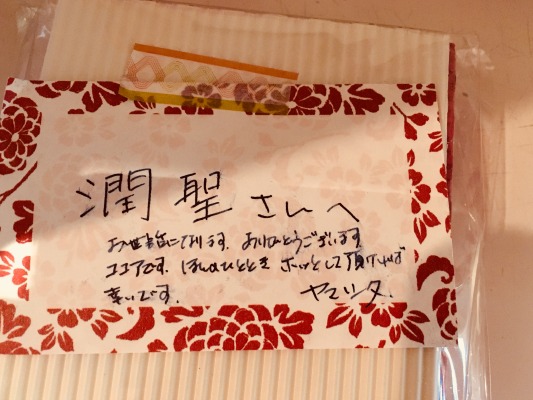 潤聖さんへ
お世話になります。ありがとうございます。
ココアです。ほんのひととき ホッとして頂ければ
幸いです。 ヤマシタ.